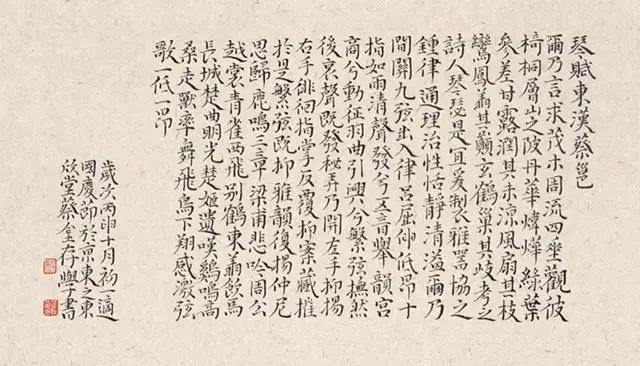 琴賦東漢蔡邕
爾乃言求茂木周流四垂觀彼
椅桐層山之陂丹華煒燁綠葉
參差甘露潤其末涼風扇其枝
鸞鳳翔其巔玄鶴巢其岐考之
詩人琴瑟是宜爰制雅器協之
鍾律通理治性恬靜清溢爾乃
間關九弦出入律呂屈伸低昂十
指如雨清聲發兮五音舉韻宮
商兮動徵羽曲引興兮繁弦撫然
後哀聲既發秘弄乃開左手抑揚
右手徘徊指掌反覆抑案藏摧
於是繁弦既抑雅韻復揚仲尼
思歸鹿鳴三章梁甫悲吟周公
越裳青雀西飛別鶴東翔飲馬
長城楚曲明光楚姬遺嘆雞鳴高
桑走獸率舞飛鳥下翔感激弦
歌一低一昂
歲次丙申十月初一適
國慶節於京東之東
欣堂蔡金存學書